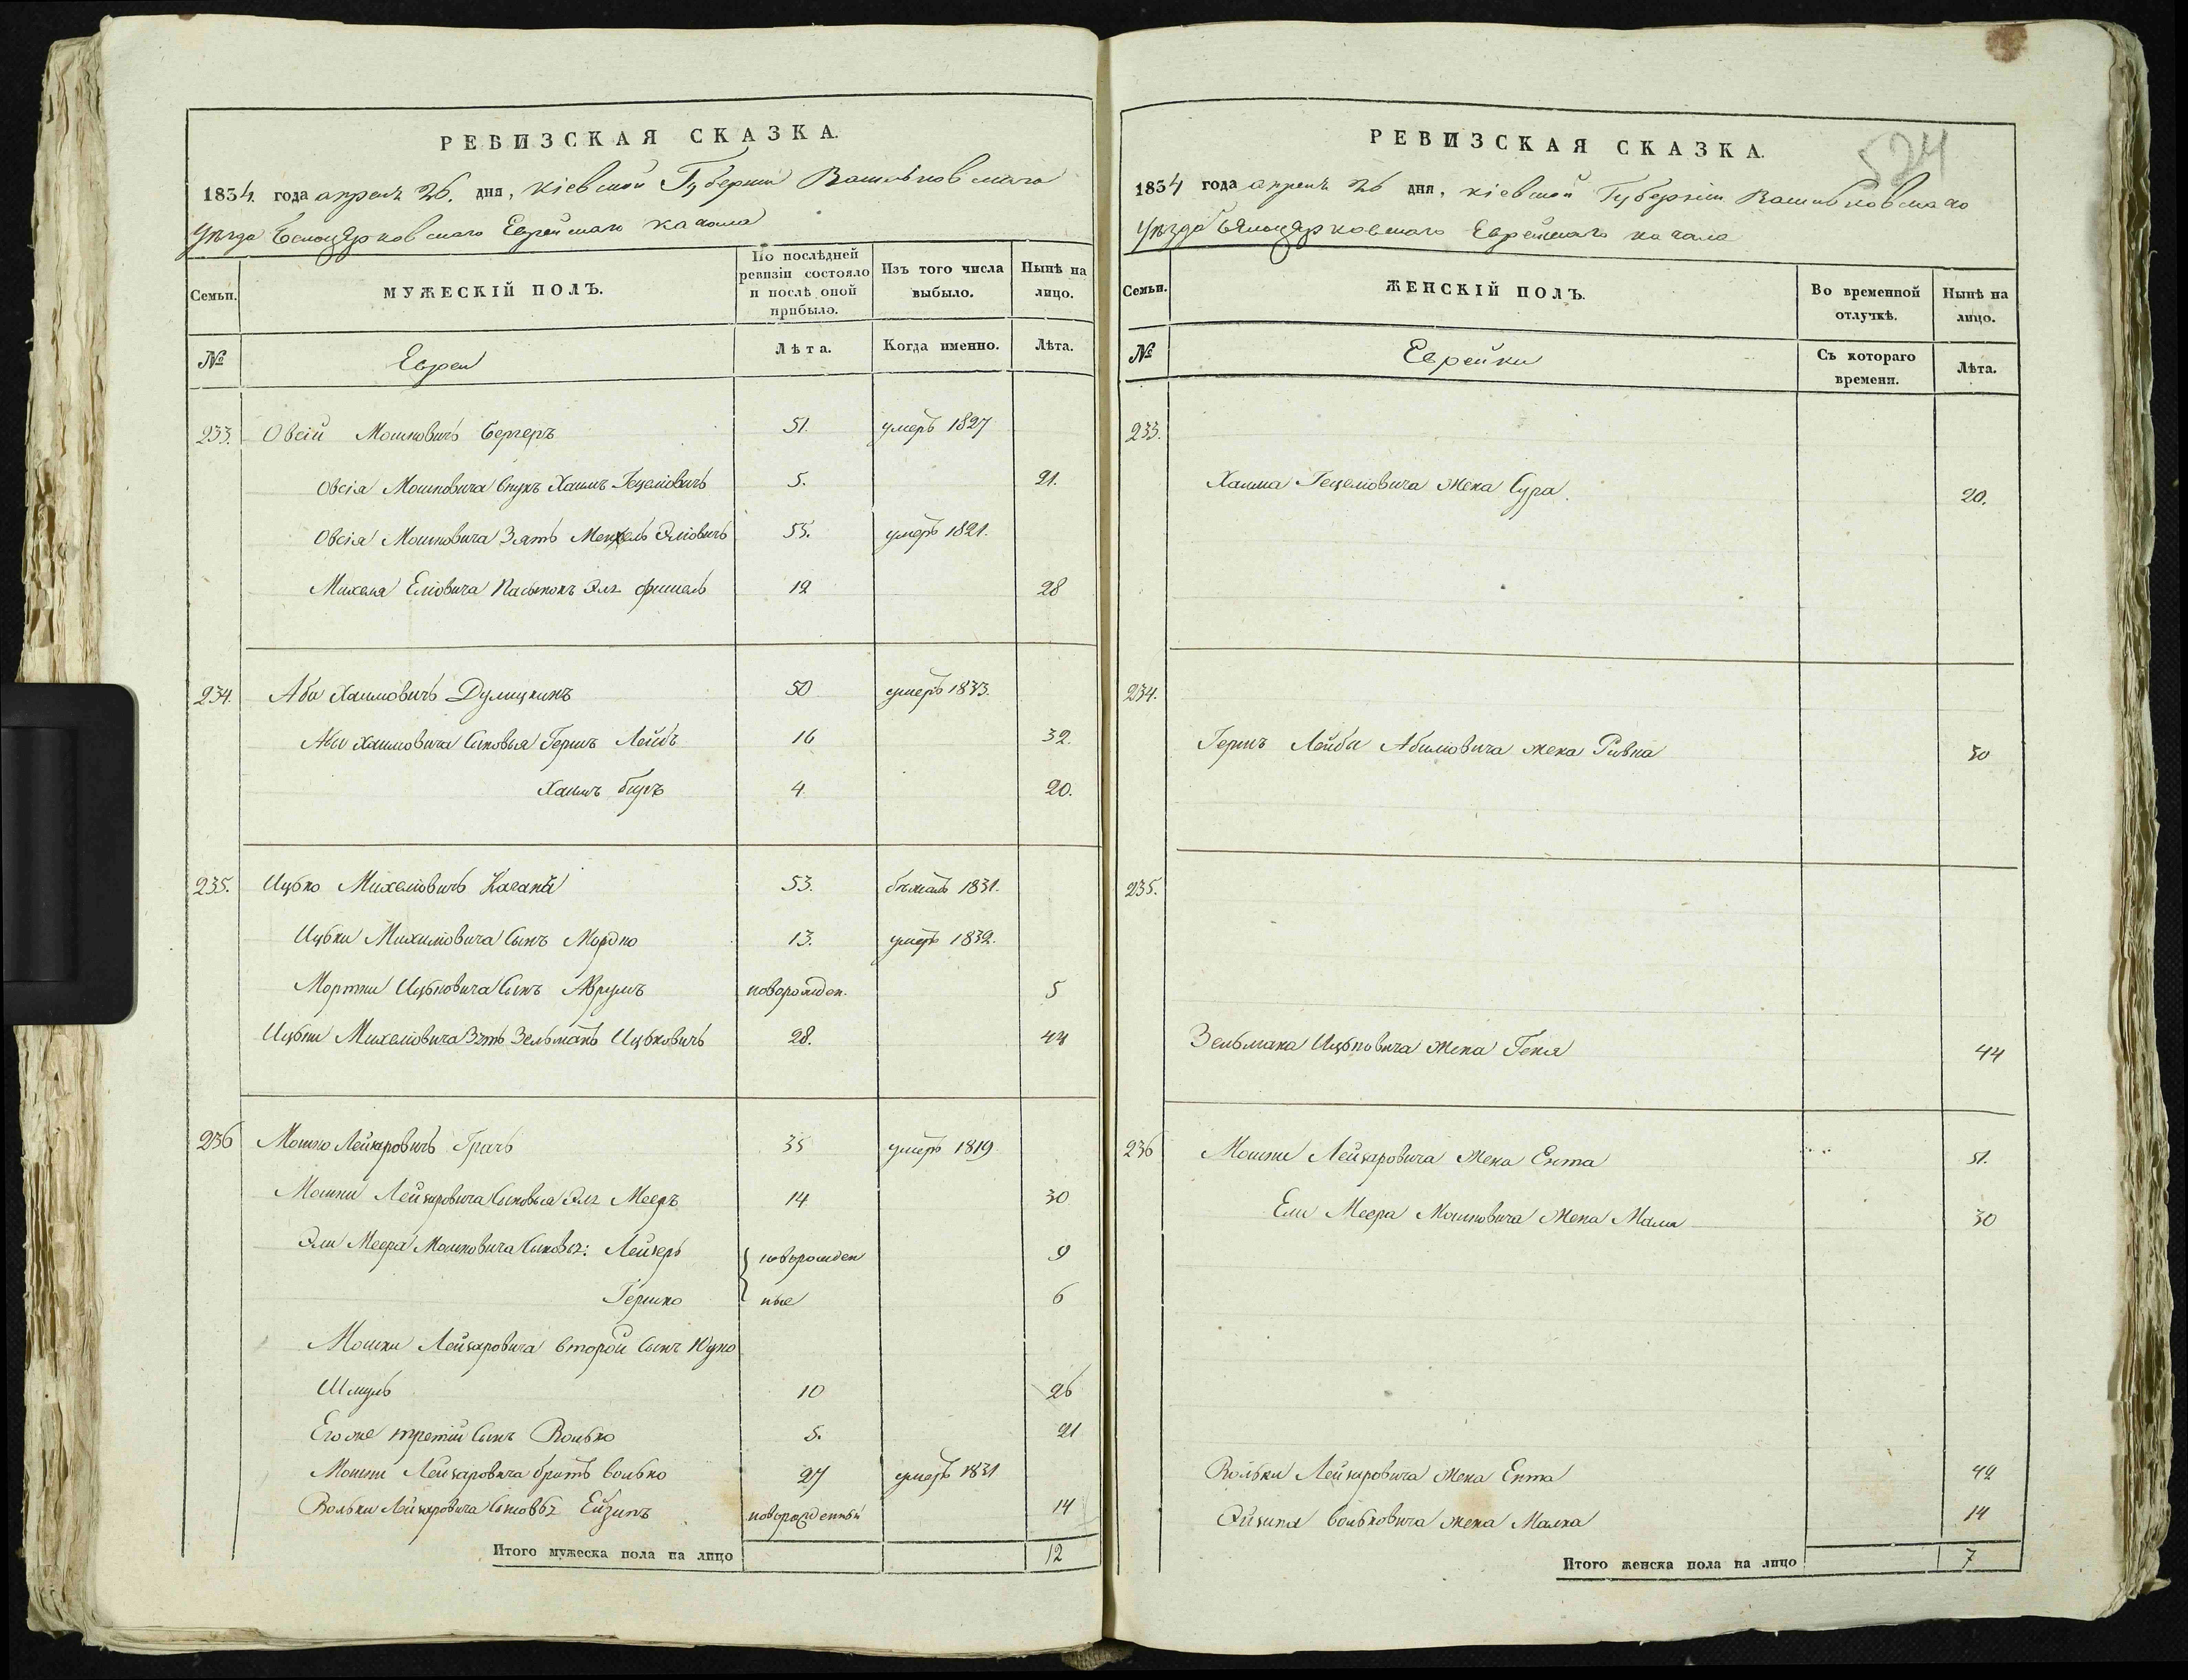 РЕВИЗСКАЯ СКАЗКА.
1834. года апреля 26. дня, Кіевской Губерніи Васильковскаго
Уѣзда Белоцерковскаго Еврейскаго кагала
Семьи.
МУЖЕСКІЙ ПОЛЪ.
По послѣдней ревизіи состояло и послѣ оной прибыло.
Изъ того числа выбыло.
Нынѣ на лицо.
№
Евреи
Лѣта.
Когда именно.
Лѣта.
233. Овсій Мошковичъ Бергеръ 51. умеръ 1827
Овсія Мошковича Внукъ Хаимъ Гецеліовичъ 5. 21.
Овсія Мошковича Зять Мехель Эліовичъ 55. умеръ 1821.
Михеля Еліовича Пасынокъ Эль Фишель 12 28
234. Аба Хаимовичъ Дулицкинъ 50 умеръ 1833.
Абы Хаимовича Сыновья Гершъ Лейбъ 16 32.
Хаимъ Беръ 4 20.
235. Ицько Михеліовичъ Каганъ 53. бежалъ 1831.
Ицьки Михиліовича Сынъ Мордко 13. умеръ 1832.
Мортки Ицьковича Сынъ Аврумъ новорожден. 5
Ицьки Михеліовича Зять Зельманъ Ицьковичъ 28. 44
236 Мошко Лейзаровичъ Грачъ 35 умеръ 1819
Мошки Лейзаровича Сыновья Эль Мееръ 14 30
Эли Меера Мошковича Сыновья: Лейзеръ новорожден 9
Гершко ные 6
Мошки Лейзаровича второй Сынъ Юдко
Шмуль 10 26
Его же третій Сынъ Волько 5. 21
Мошки Лейзаровича братъ Волько 27 умеръ 1831
Вольки Лейзаровича Сыновья Ейзикъ новорожденный 14
Итого мужеска пола на лицо 12
524
РЕВИЗСКАЯ СКАЗКА.
1834 года апреля 26 дня, Кіевской Губерніи Васильковскаго
Уѣзда Бѣлоцерковскаго Еврейскаго кагала
Семьи.
ЖЕНСКІЙ ПОЛЪ.
Во временной отлучкѣ.
Нынѣ на лицо.
№
Еврейки
Съ котораго времени.
Лѣта.
233.
Хаима Гецеліовича жена Сура. 20.
234.
Гершъ Лейбы Абиміовича жена Ривка 30
235.
Зельмана Ицьковича жена Геня 44
236 Мошки Лейзаровича жена Ента 51.
Ели Меера Мошковича жена Маля 30
Вольки Лейзаровича жена Ента 42
Эйзика Вольковича жена Малка 14
Итого женска пола на лицо 7